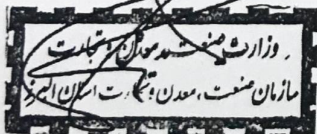 وزارت صنعت معدن و تجارت
سازمان صنعت، معدن و تجارت استان البرز